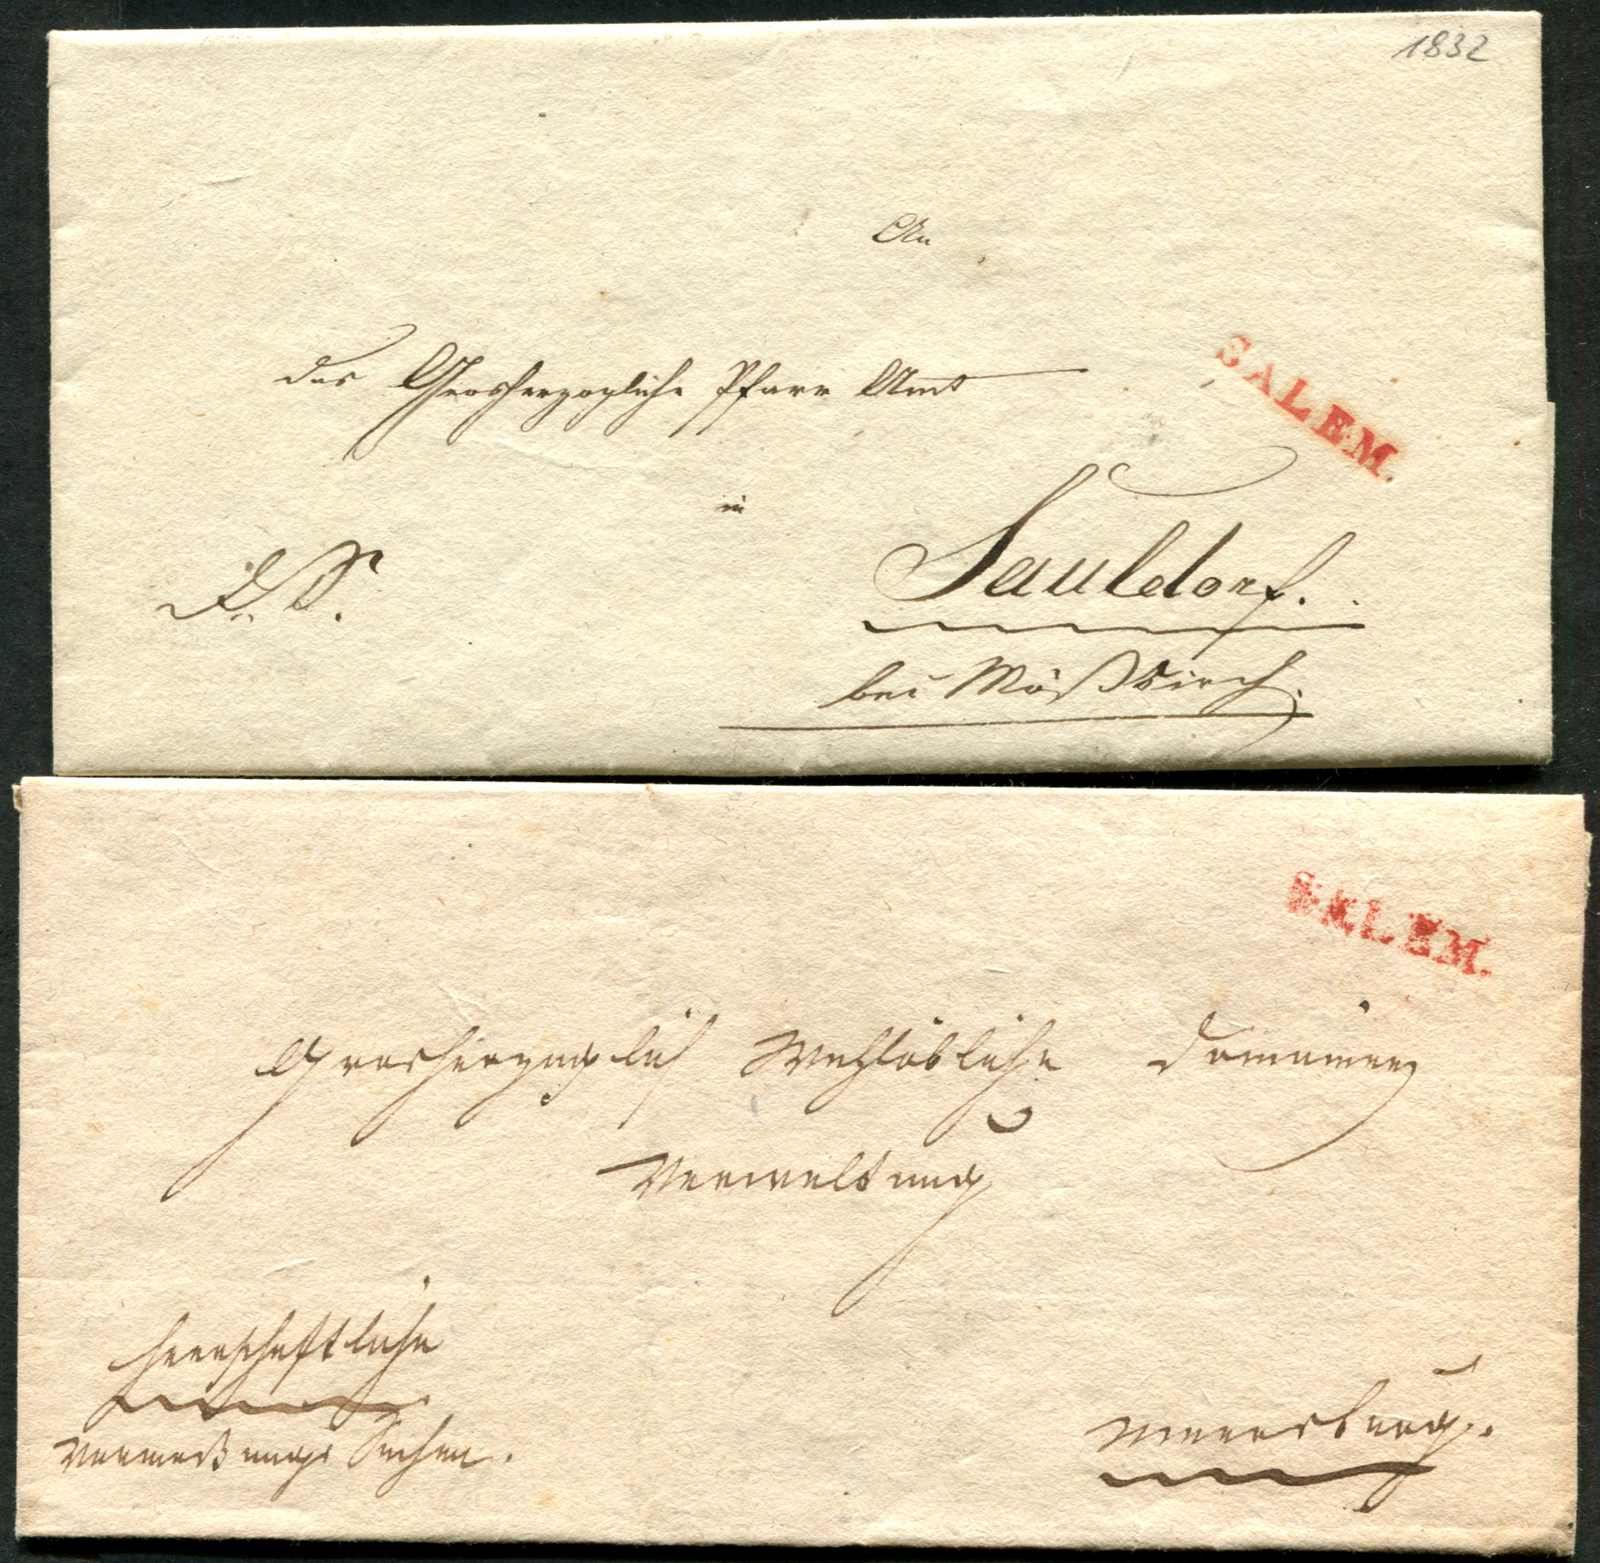 1832
An
das Grosherzogliche Pfarr Amt
SALEM.
in
Sauldorf.
D. S.
bei Mößkirch.
SALEM.
Grosherzoglich Wohllöbliche Domainen
Verwaltung
Herrschaftliche
Vermeßungs Sachen.
Meersburg.